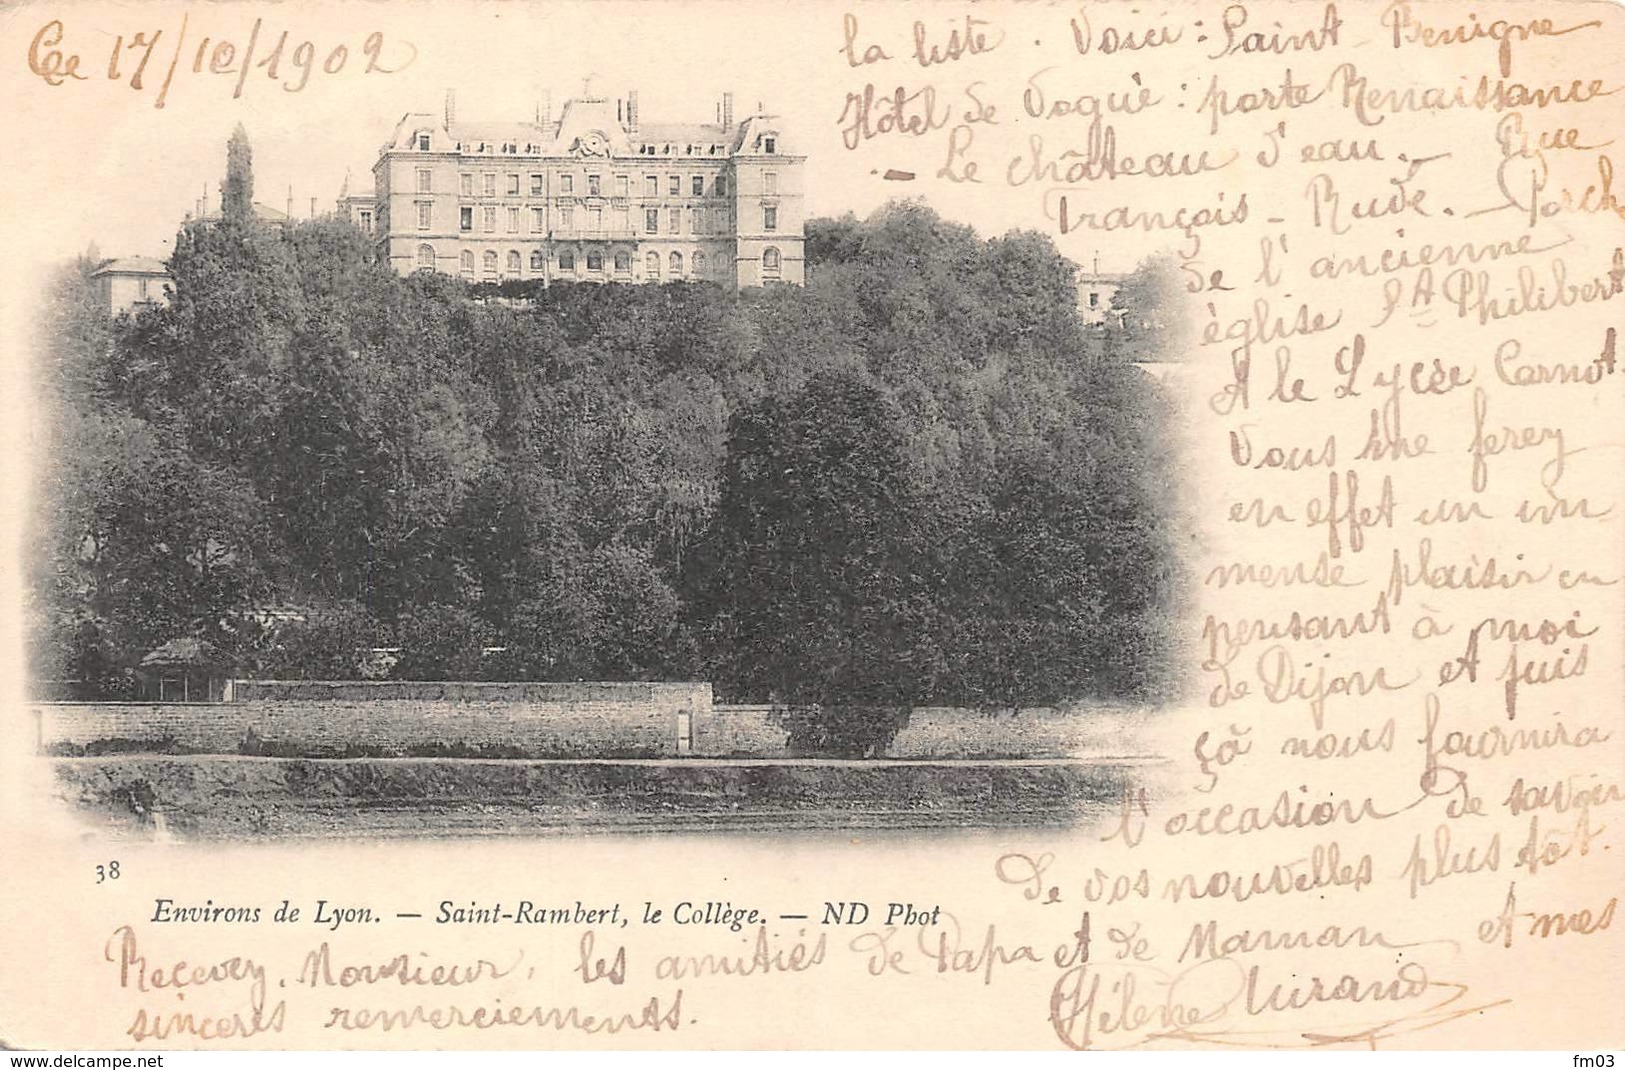 Ce 17/10/1902
la liste. Voici : Saint-Benigne
Hôtel de Voguë : porte Renaissance
- Le château d'eau. - Rue
François-Rude. - Porche
de l'ancienne
église St Philibert
A le Lycée Carnot.
Vous me ferez
en effet un im-
mense plaisir en
pensant à moi
de Dijon et puis
çà nous fournira
l'occasion de savoir
de vos nouvelles plus tôt.
38
Environs de Lyon. — Saint-Rambert, le Collège. — ND Phot
Recevez, Monsieur, les amitiés de Papa et de Maman et mes
sincères remerciements.
Hélène Durand
www.delcampe.net
fm03